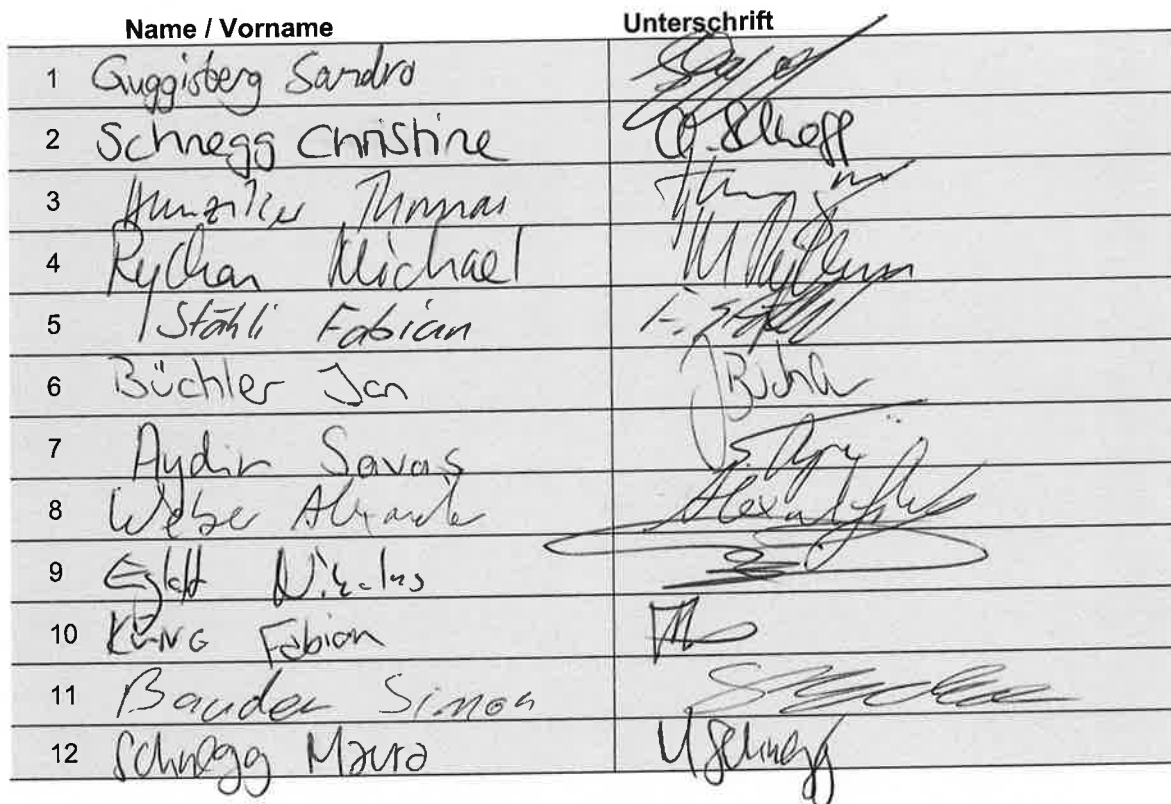 Name / Vorname Unterschrift
1 Guggisberg Sandro
2 Schnegg Christine C. Schnegg
3 Hunziker Thomas
4 Michael
5 Stähli Fabian F. Stähli
6 Büchler Jan
7 Aydin Savas
8 Weber Alexander
9 Niklaus
10 KüNG Fabian
11 Bauder Simon
12 Schnegg Maura M Schnegg